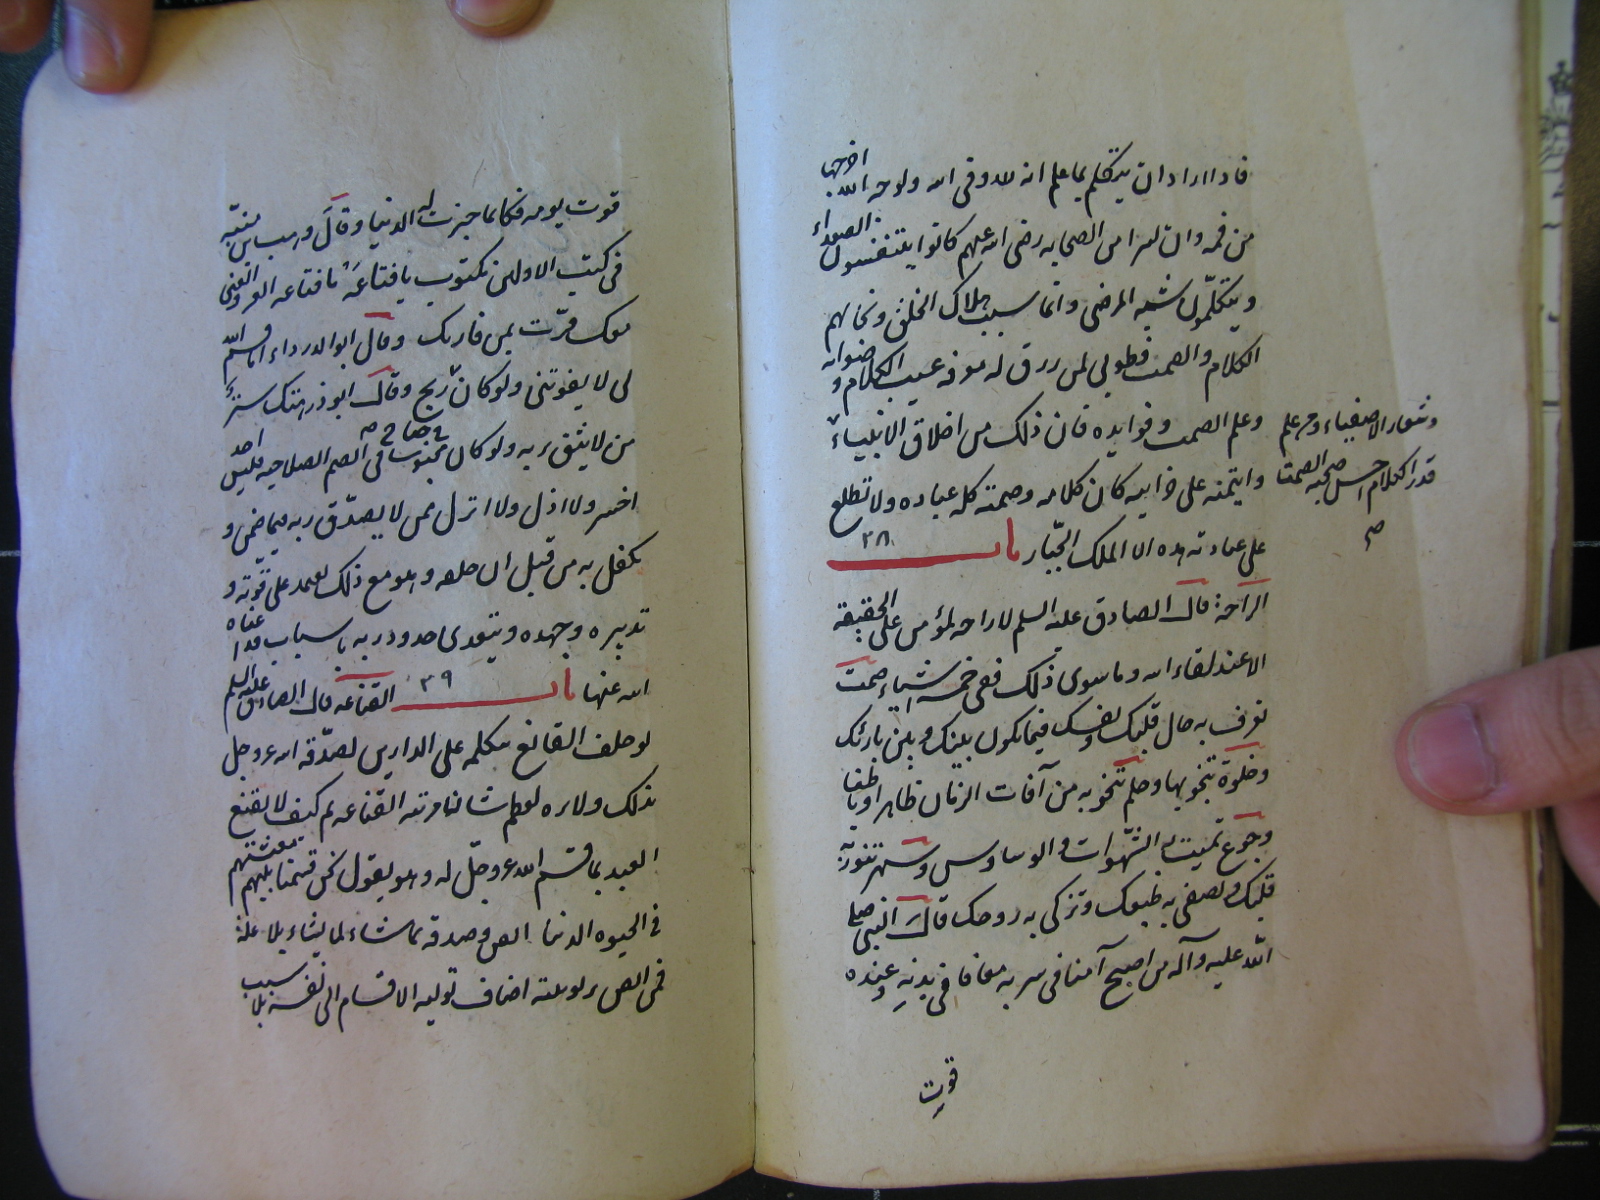 فاذا اراد ان يتكلم بما علم انه لله وفى الله ولوجه الله اخرجها
من فمه وان كثيرا من الصحابه رضى الله عنهم كانوا يتنفسون الصعداء
ويتكلّمون شبه المرضى وانما سبب هلاك الخلق ونجاتهم
الكلام والصمت فطوبى لمن رزق معرفه عيب الكلام وصوابه
وعلم الصمت وفوايده فان ذلك من اخلاق الانبياء
وشعار الاصفياء ومن علم
قدر الكلام احسن صحبه الصمت
صح
وايتمنه على خزاينه كان كلامه وصمته كله عباده ولا تطلع
على عبادته هذه الا الملك الجبّار باب ٢٨
الراحة قال الصادق عليه السلم لا راحه لمؤمن على الحقيقة
الا عند لقاء الله وما سوى ذلك ففى خمسه اشياء صمت
تعرف به حال قلبك ونفسك فيما يكون بينك وبين بارئك
وخلوة تنجو بها وحلم تنجو به من آفات الزمان ظاهرا وباطنا
وجوع تميت به الشّهوات والوساوس وسهر تنوّر به
قلبك وتصفى به طبعك وتزكى به روحك قال النبى صلى
الله عليه وآله من اصبح آمنا فى سربه معافا فى بدنه وعنده
قوت
قوت يومه فكانما حيزت له الدنيا وقال وهب بن منبّه
فى كتب الاولين مكتوب يا قناعة يا قناعه العز والغنى
معك فزت بمن فاز بك وقال ابو الدرداء ما قسم الله
لى لا يفوتنى ولو كان فى جناح ريح وقال ابو ذر هتك ستر
من لا يثق بربه ولو كان محبوسا فى الصم الصلاخيد فليس احد
اخسر ولا اذل ولا انزل ممن لا يصدّق ربه فيما ضمن و
تكفل به من قبل ان خلقه وهو مع ذلك يعتمد على قوّته و
تدبيره وجهده ويتعدى حدود ربه باسباب قد اغناه
الله عنها باب ٢٩ القناعه قال الصادق عليه السلم
لو حلف القانع بتملكه على الدارين لصدّقه الله عز وجل
بذلك ولابره لعظم شان مرتبه القناعه ثم كيف لا يقنع
العبد بما قسم الله عز وجلّ له وهو يقول نحن قسمنا بينهم معيشتهم
فى الحيوه الدنيا فمن وصدقه بما شاء لما يشاء بلا علة
فمن ربوبيته اضاف توليه الاقسام الى نفسه بلا سبب